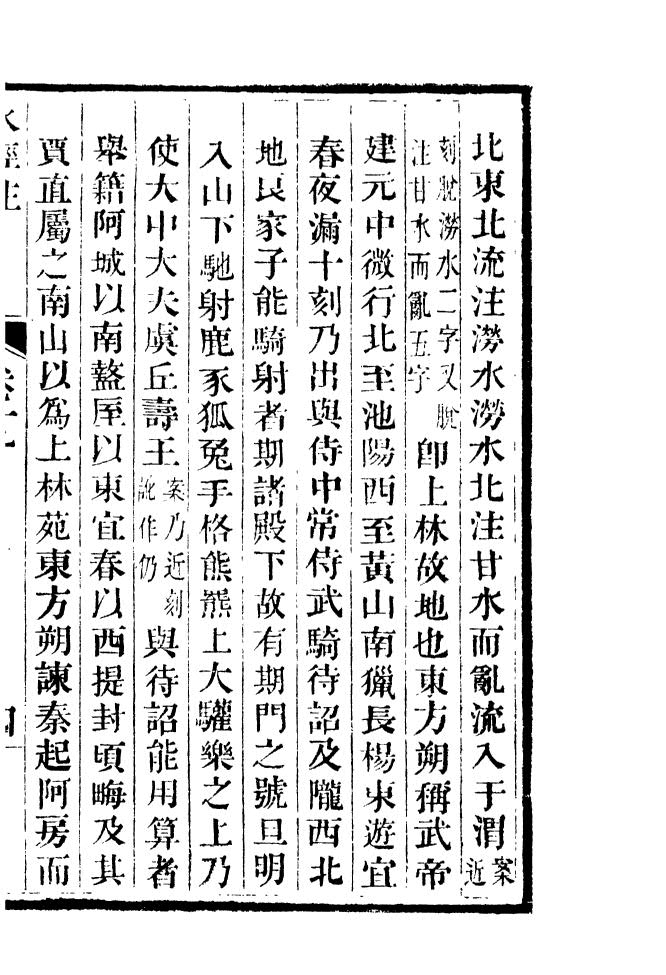 北東北流注澇水澇水北注甘水而亂流入于渭案近
刻脫澇水二字又脫注甘水而亂五字卽上林故地也東方朔稱武帝
建元中微行北至池陽西至黃山南獵長楊東遊宜
春夜漏十刻乃出與侍中常侍武騎待詔及隴西北
地良家子能騎射者期諸殿下故有期門之號旦明
入山下馳射鹿豕狐兔手格熊羆上大驩樂之上乃
使大中大夫虞丘壽王案乃近刻訛作仍與待詔能用算者
舉籍阿城以南盩厔以東宜春以西提封頃畮及其
賈直屬之南山以爲上林苑東方朔諫秦起阿房而
水經注 卷十九 四